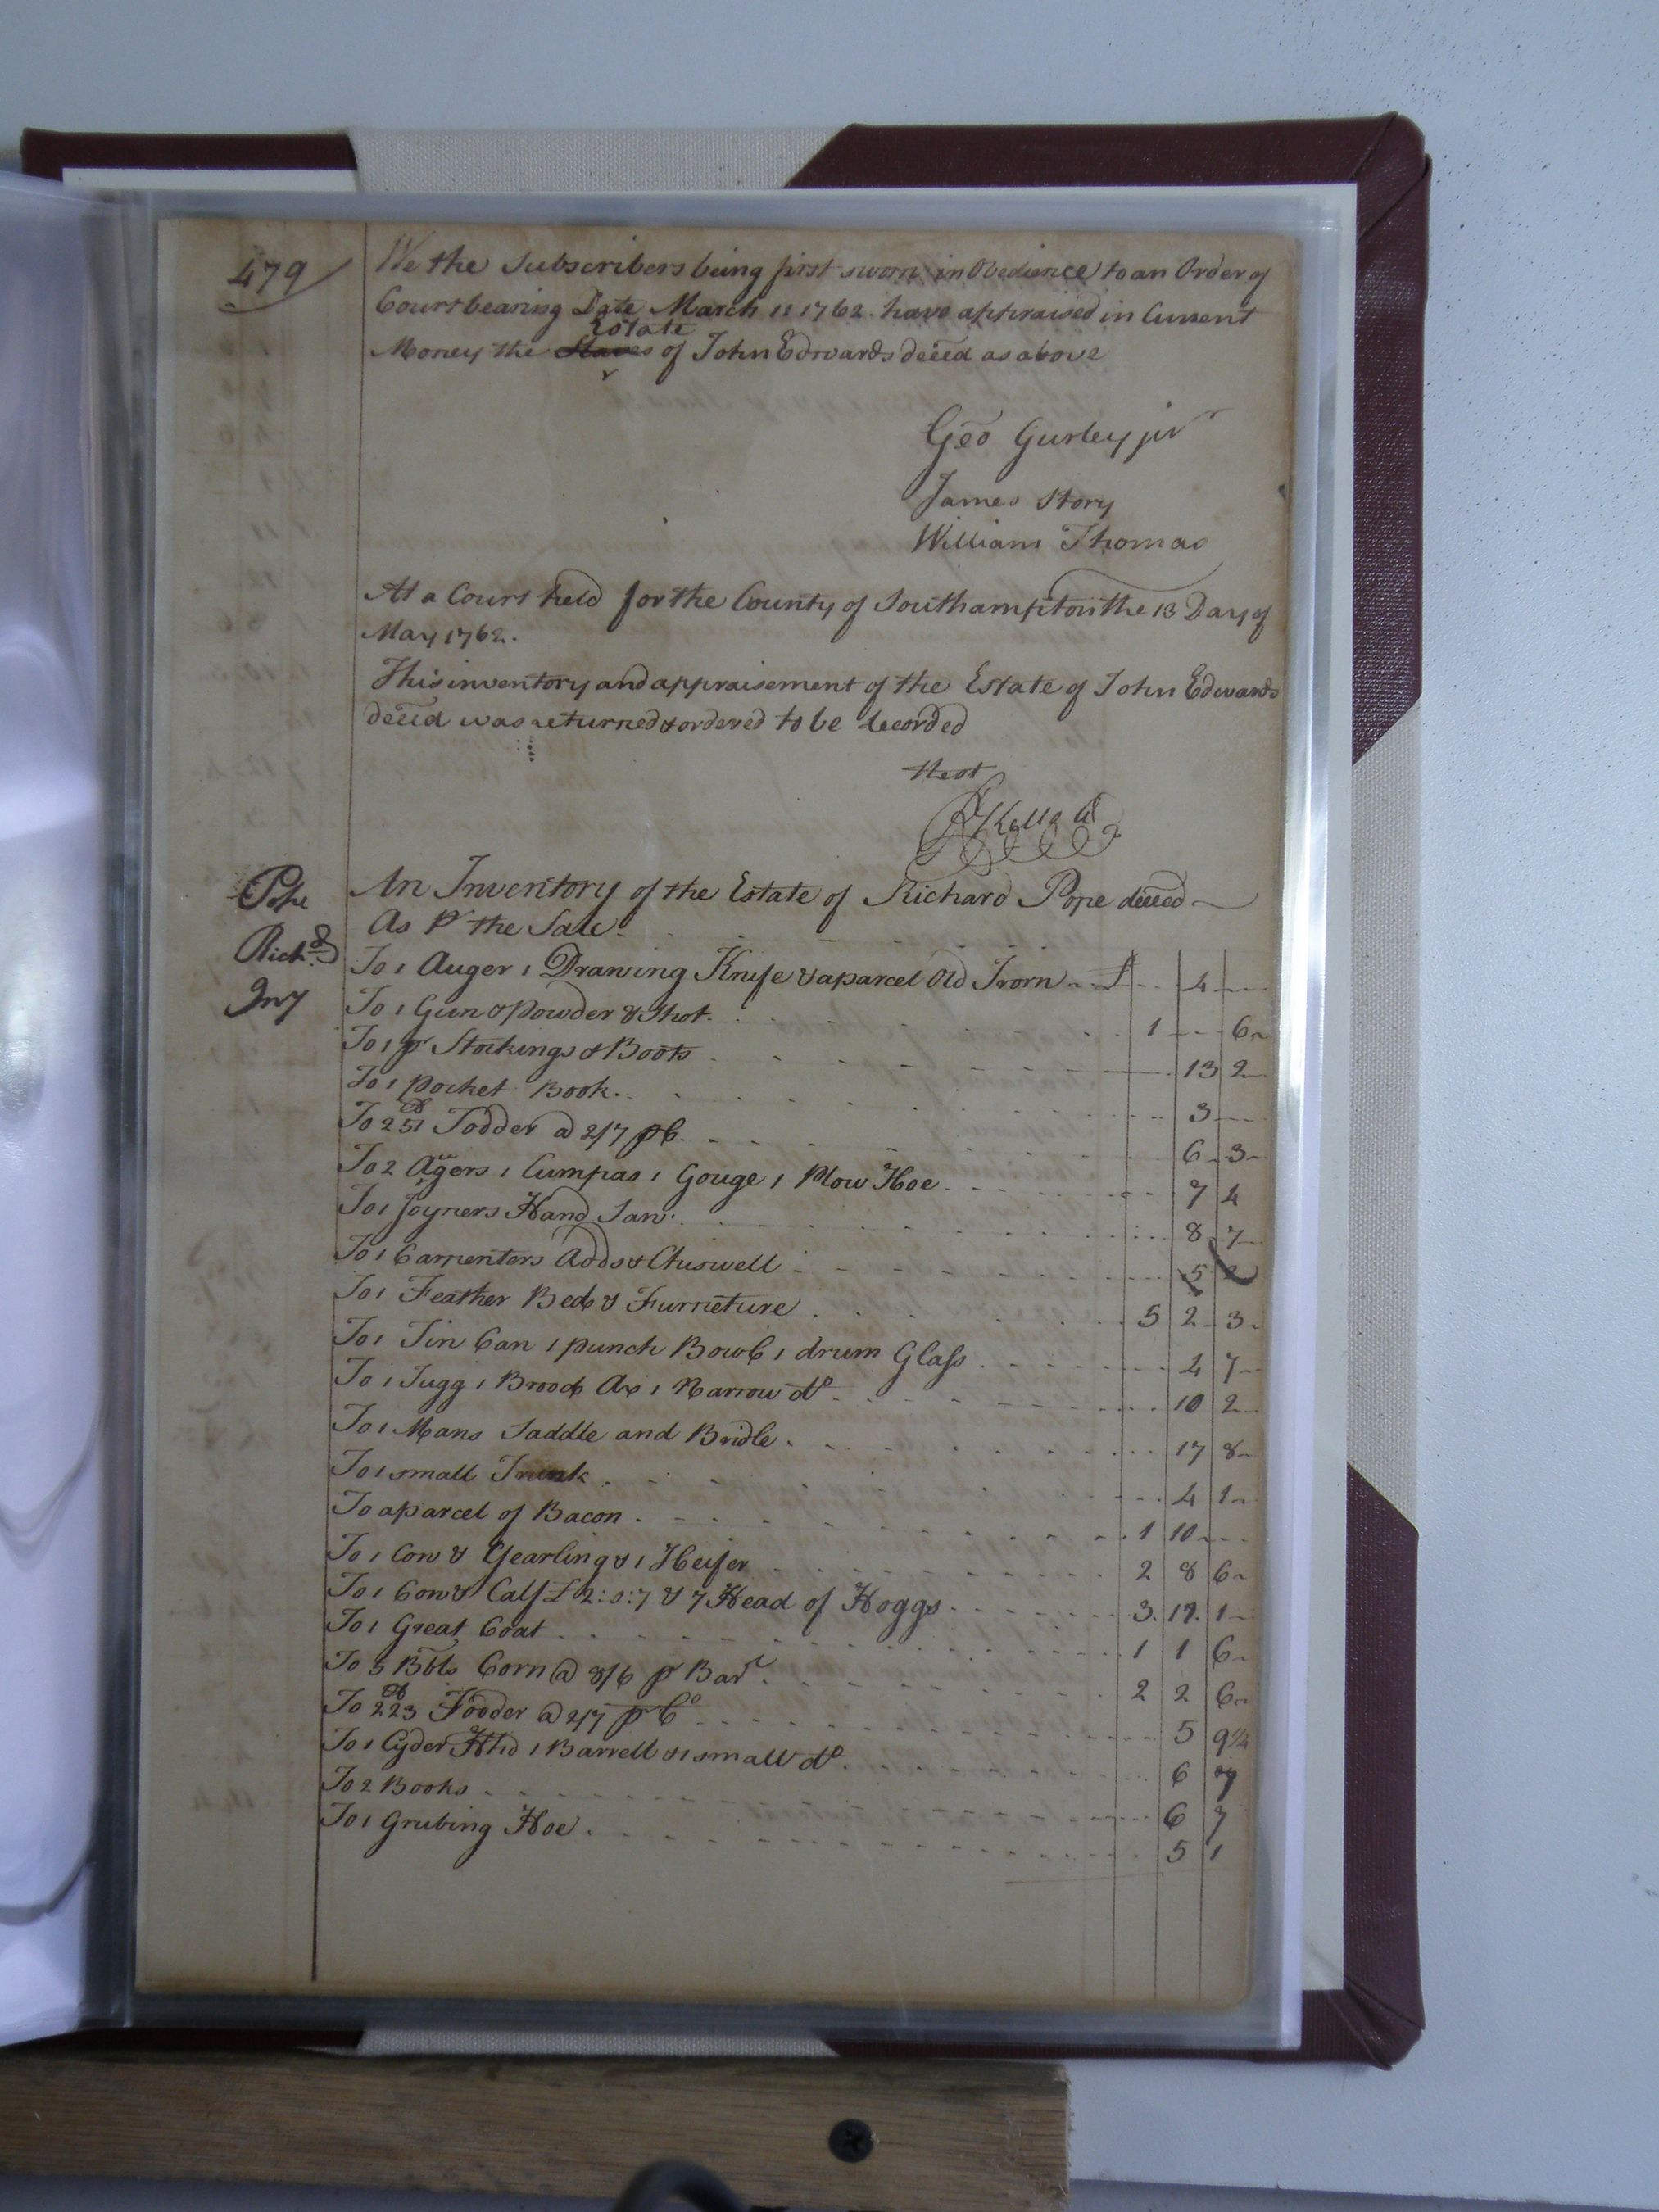 479
We the Subscribers being first sworn in Obedience to an Order of
Court bearing Date March 11 1762. have appraised in Current
Estate
Money the Slaves of John Edwards deced as above
Geo Gurley jur
James Story
William Thomas
At a Court held for the County of Southampton the 13 Day of
May 1762.
This inventory and appraisement of the Estate of John Edwards
deced was returned & ordered to be Recorded
Test
RKello Cl
Pope
Richd
Invy
An Inventory of the Estate of Richard Pope deceed
As Pr the Sale
To 1 Auger 1 Drawing Knife & a parcel Old Irorn £ 4
To 1 Gun & powder & Shot. 1 6
To 1 pr Stockings & Boots 13 2
To 1 pocket Book. 3
To 251 Fodder @ 2/7 p C. 6 3
To 2 Agers 1 Cumpas 1 Gouge 1 Plow Hoe 7 4
To 1 Joyners Hand Saw. 8 7
To 1 Carpenters Adds & Chiswell 5 2
To 1 Feather Bed & Furneture 5 2 3
To 1 Tin Can 1 punch Bowl 1 dram Glass 4 7
To 1 Jugg 1 Brood Ax 1 Narrow do 10 2
To 1 Mans Saddle and Bridle 17 8
To 1 small Trunk 4 1
To a parcel of Bacon 1 10
To 1 Cow & Yearling & 1 Heifer 2 8 6
To 1 Cow & Calf £ 2:0:7 & 7 Head of Hoggs 3. 17. 1
To 1 Great Coat 1 1 6
To 5 Bbls Corn @ 8/6 p Barl 2 2 6
To 223 Fodder @ 2/7 p Co 5 9¼
To 1 Cyder Hhd 1 Barrell & 1 small do. 6 7
To 2 Books 6 7
To 1 Grubing Hoe 5 1